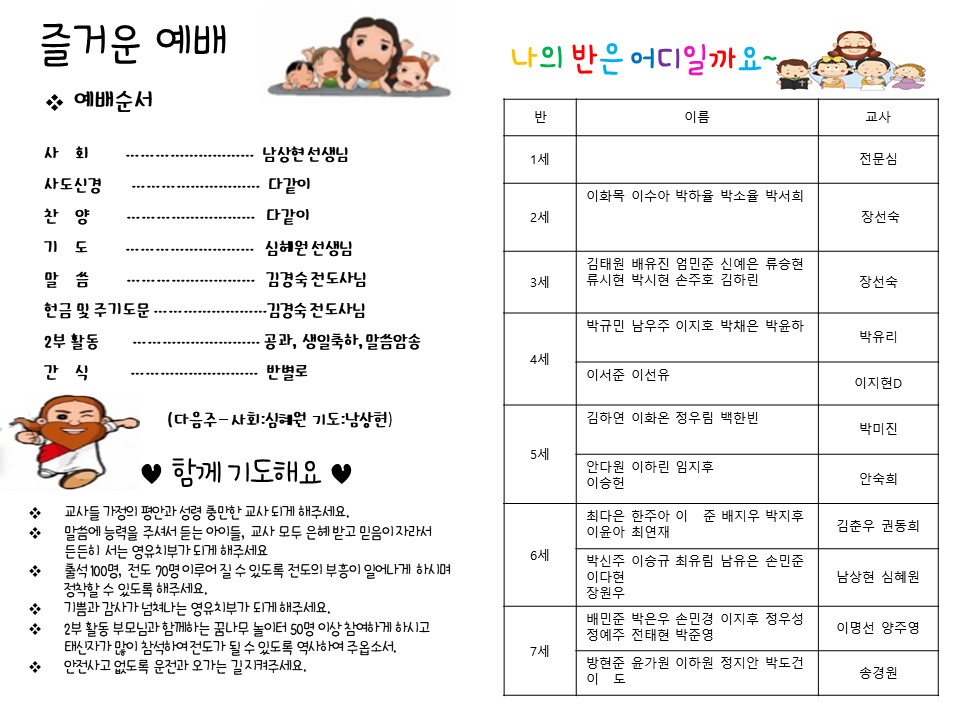 즐거운 예배
❖ 예배순서
사 회 ---------------------------- 남상현 선생님
사도신경 ---------------------------- 다같이
찬 양 ---------------------------- 다같이
기 도 ---------------------------- 심혜원 선생님
말 씀 ---------------------------- 김경숙 전도사님
헌금 및 주기도문 -------------------------김경숙 전도사님
2부 활동 ---------------------------- 공과, 생일축하, 말씀암송
간 식 ---------------------------- 반별로
(다음주-사회:심혜원 기도:남상현)
♥ 함께 기도해요 ♥
❖ 교사들 가정의 평안과 성령 충만한 교사 되게 해주세요.
❖ 말씀에 능력을 주셔서 듣는 아이들, 교사 모두 은혜 받고 믿음이 자라서
든든히 서는 영유치부가 되게 해주세요
❖ 출석 100명, 전도 70명 이루어 질 수 있도록 전도의 부흥이 일어나게 하시며
정착할 수 있도록 해주세요.
❖ 기쁨과 감사가 넘쳐나는 영유치부가 되게 해주세요.
❖ 2부 활동 부모님과 함께하는 꿈나무 놀이터 50명 이상 참여하게 하시고
태신자가 많이 참석하여 전도가 될 수 있도록 역사하여 주옵소서.
❖ 안전사고 없도록 운전과 오가는 길 지켜주세요.
나의 반은 어디일까요~
반 이름 교사
1세 전문심
2세 이화목 이수아 박하율 박소율 박서희 장선숙
3세 김태원 배유진 엄민준 신예은 류승현
류시현 박시현 손주호 김하린 장선숙
4세 박규민 남우주 이지호 박채은 박윤하 박유리
이서준 이선유 이지현D
5세 김하연 이화온 정우림 백한빈 박미진
안다원 이하린 임지후
이승헌 안숙희
6세 최다은 한주아 이 준 배지우 박지후
이윤아 최연재 김춘우 권동희
박신주 이승규 최유림 남유은 손민준
이다현
장원우 남상현 심혜원
7세 배민준 박은우 손민경 이지후 정우성
정예주 전태현 박준영 이명선 양주영
방현준 윤가원 이하원 정지안 박도건
이 도 송경원